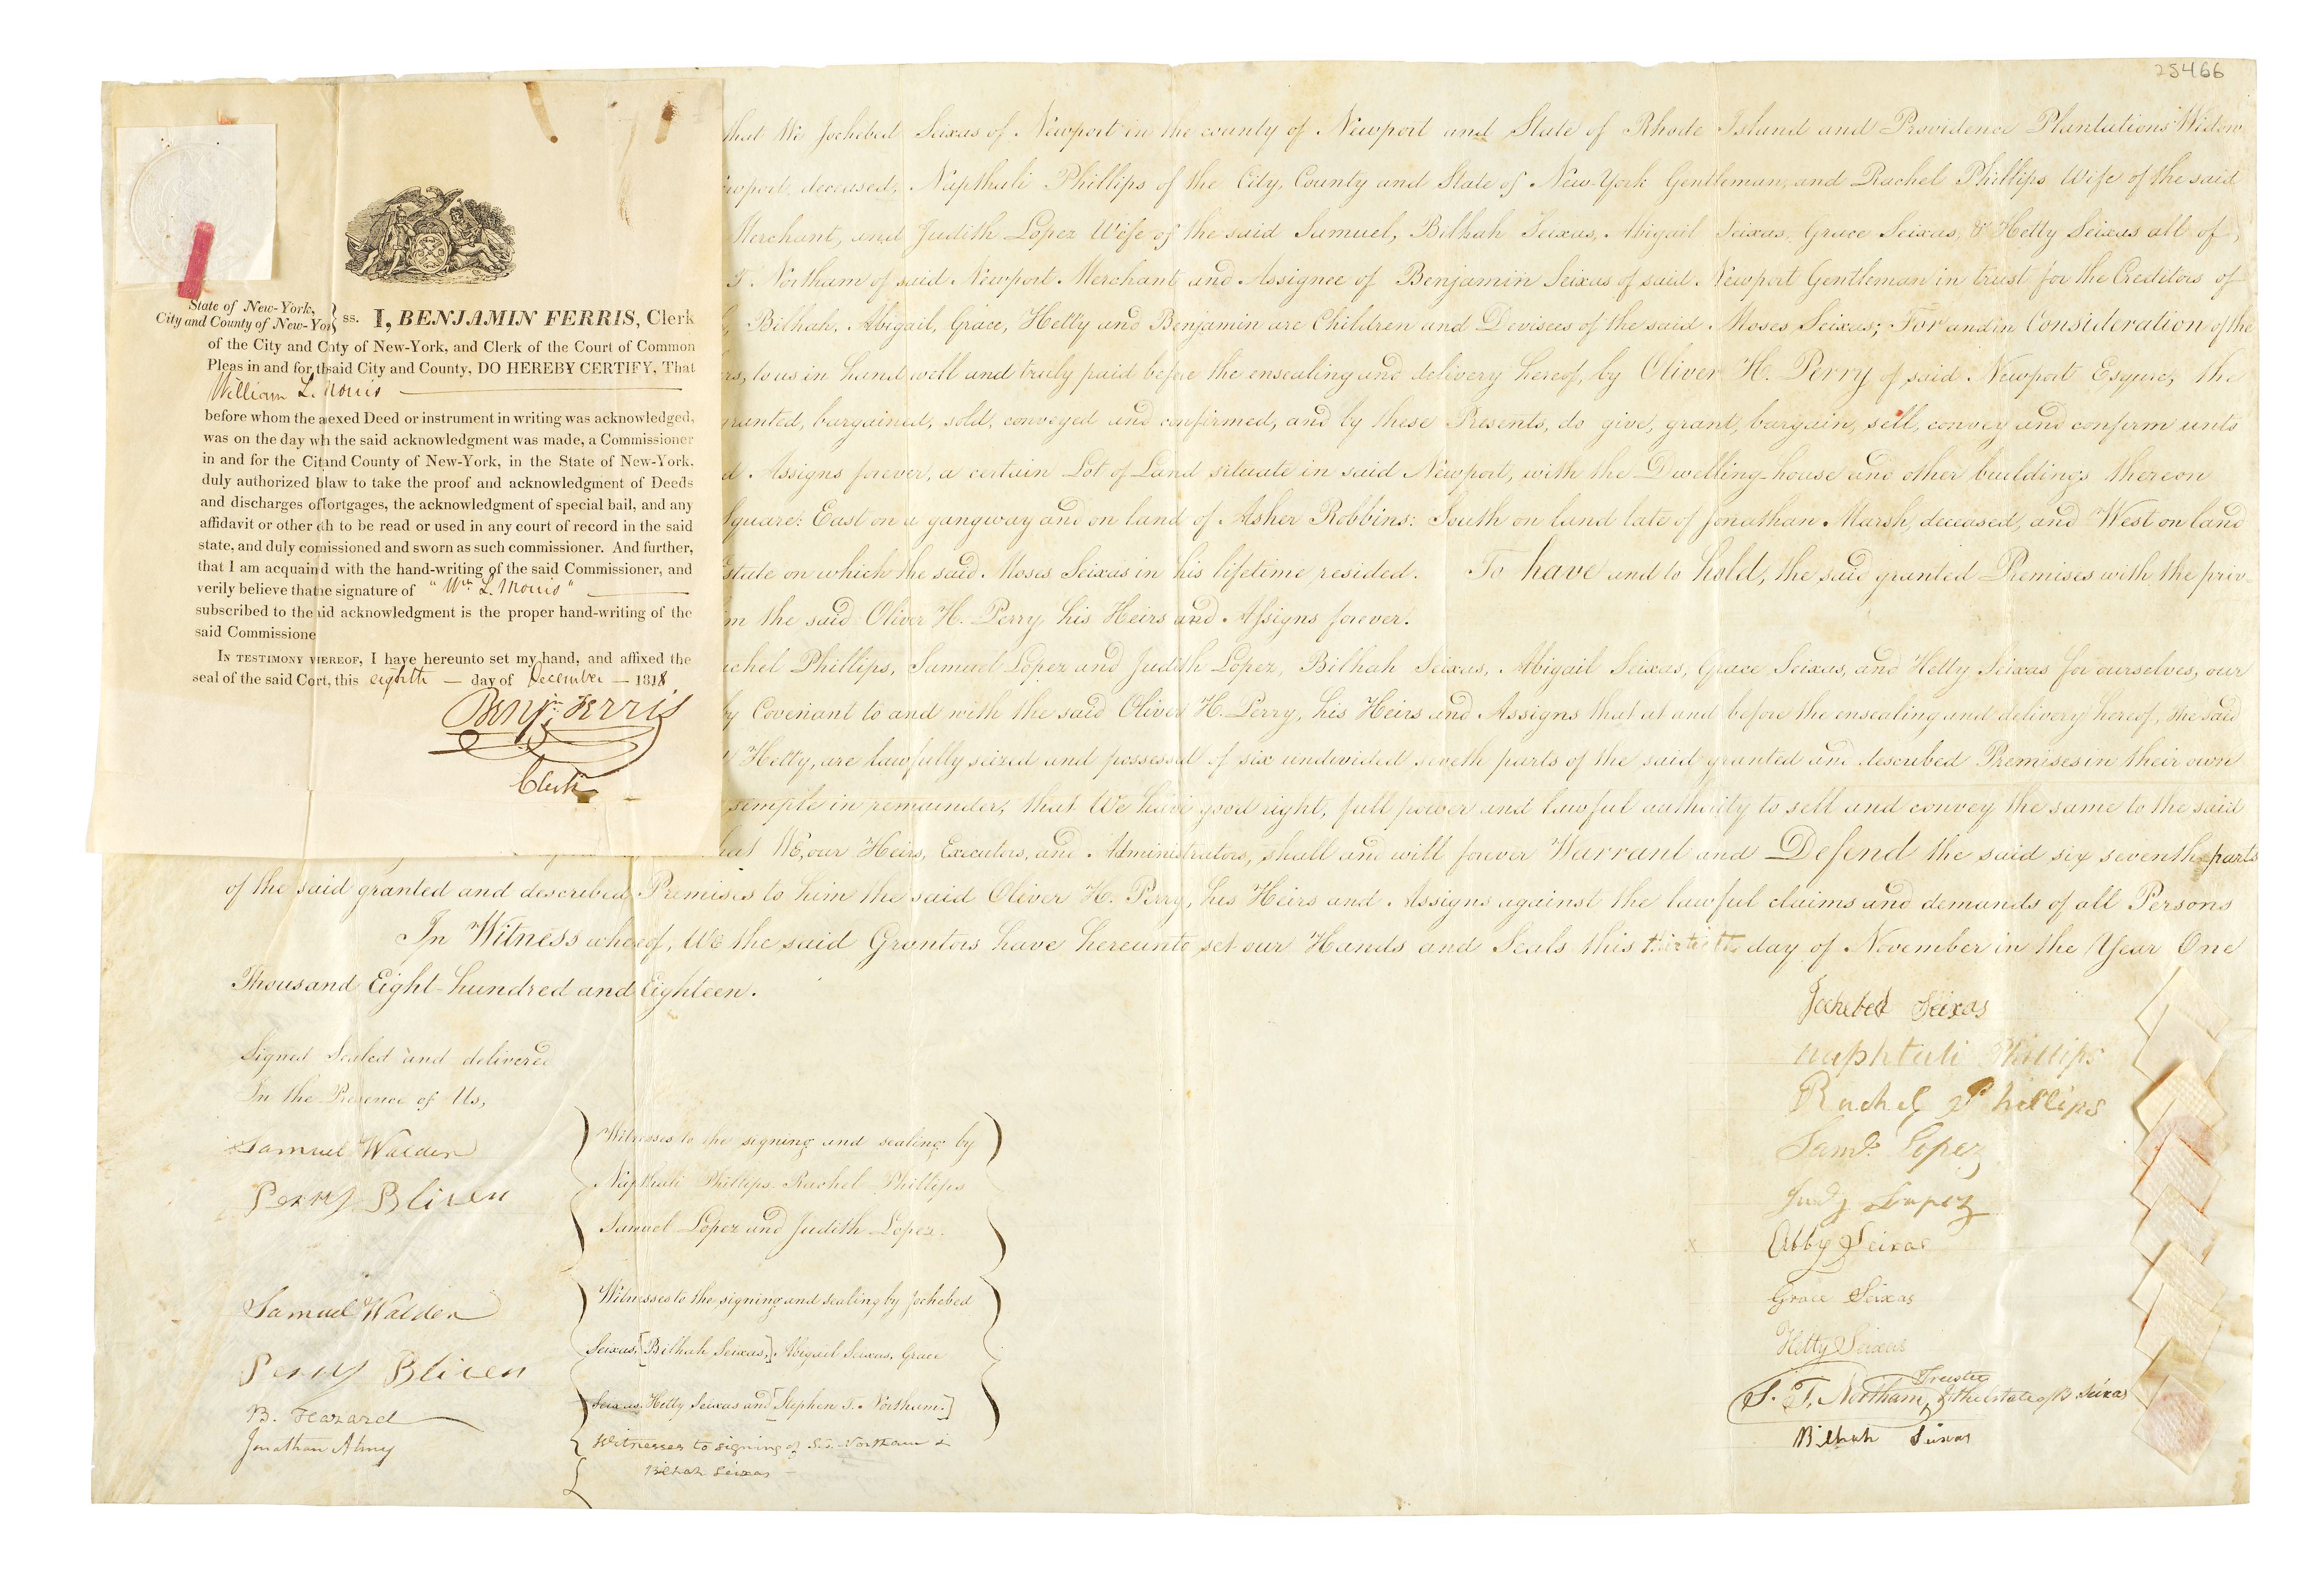 25466
State of New-York,
City and County of New-Yor } ss. I, BENJAMIN FERRIS, Clerk
of the City and C nty of New-York, and Clerk of the Court of Common
Pleas in and for th said City and County, DO HEREBY CERTIFY, That
William L. Morris
before whom the a exed Deed or instrument in writing was acknowledged,
was on the day wh the said acknowledgment was made, a Commissioner
in and for the Cit and County of New-York, in the State of New-York,
duly authorized b law to take the proof and acknowledgment of Deeds
and discharges of ortgages, the acknowledgment of special bail, and any
affidavit or other th to be read or used in any court of record in the said
state, and duly co missioned and sworn as such commissioner. And further,
that I am acquain d with the hand-writing of the said Commissioner, and
verily believe that e signature of "Wm. L. Morris"
subscribed to the id acknowledgment is the proper hand-writing of the
said Commissione
IN TESTIMONY HEREOF, I have hereunto set my hand, and affixed the
seal of the said Co rt, this eighth day of December 1818
Benj. Ferris
Clerk
that We Jochebed Seixas of Newport in the county of Newport and State of Rhode Island and Providence Plantations Widow
wport, deceased, Napthali Phillips of the City, County and State of New-York Gentleman, and Rachel Phillips Wife of the said
Merchant, and Judith Lopez Wife of the said Samuel, Bilhah Seixas, Abigail Seixas, Grace Seixas, & Hetty Seixas all of
T. Northam of said Newport Merchant and Assignee of Benjamin Seixas of said Newport Gentleman in trust for the Creditors of
Bilhah, Abigail, Grace, Hetty and Benjamin are Children and Devisees of the said Moses Seixas; For and in Consideration of the
rs, to us in hand well and truly paid before the ensealing and delivery hereof, by Oliver H. Perry of said Newport Esquire, the
ranted, bargained, sold, conveyed and confirmed, and by these Presents, do give, grant, bargain, sell, convey and confirm unto
d Assigns forever, a certain Lot of Land situate in said Newport, with the Dwelling-house and other buildings thereon
Square: East on a gangway and on land of Asher Robbins: South on land late of Jonathan Marsh, deceased, and West on land
state on which the said Moses Seixas in his lifetime resided. To have and to hold, the said granted Premises with the priv-
m the said Oliver H. Perry his Heirs and Assigns forever.
chel Phillips, Samuel Lopez and Judith Lopez, Bilhah Seixas, Abigail Seixas, Grace Seixas, and Hetty Seixas for ourselves, our
y Covenant to and with the said Oliver H. Perry, his Heirs and Assigns that at and before the ensealing and delivery hereof, the said
Hetty, are lawfully seized and possessed of six undivided seveth parts of the said granted and described Premises in their own
simple in remainder, that We have good right, full power and lawful authority to sell and convey the same to the said
hat We, our Heirs, Executors, and Administrators, shall and will forever Warrant and Defend the said six sevenths parts
of the said granted and described Premises to him the said Oliver H. Perry, his Heirs and Assigns against the lawful claims and demands of all Persons
In Witness whereof, We the said Grantors have hereunto set our Hands and Seals this thirtieth day of November in the Year One
Thousand Eight-hundred and Eighteen.
Signed Sealed and delivered
In the Presence of Us,
Samuel Walden
Perry Bliven
Witnesses to the signing and sealing by
Napthali Phillips Rachel Phillips
Samuel Lopez and Judith Lopez.
Samuel Walden
Perry Bliven
B. Hazard
Jonathan Almy
Witnesses to the signing and sealing by Jochebed
Seixas, [Bilhah Seixas,] Abigail Seixas, Grace
Seixas, Hetty Seixas and [Stephen T. Northam.]
Witnesses to signing of S. T. Northam &
Bilhah Seixas
Jochebed Seixas
Naphtali Phillips
Rachel Phillips
Saml. Lopez
Judy Lopez
Abby Seixas
Grace Seixas
Hetty Seixas
S. T. Northam Trustee of the Estate of B Seixas
Bilhah Seixas